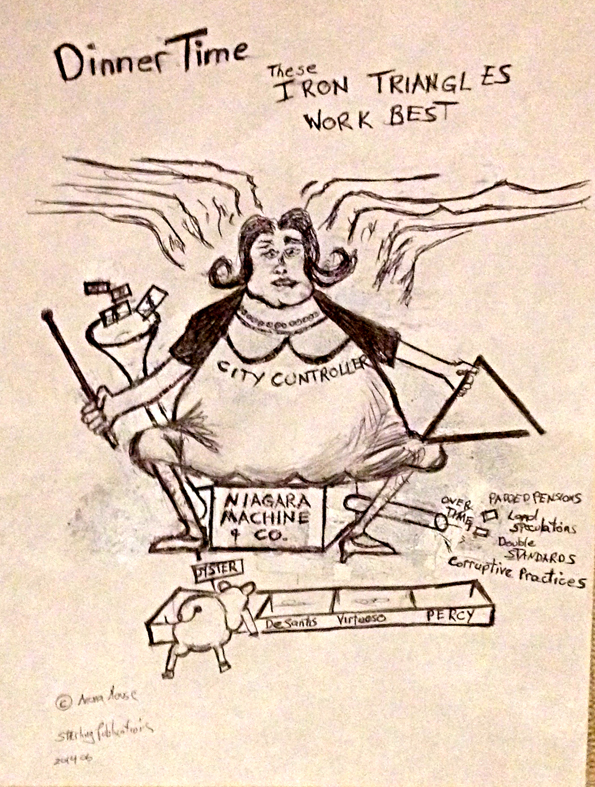 Dinner Time
These
IRON TRIANGLES
WORK BEST
CITY CONTROLLER
NIAGARA
MACHINE
& CO.
OVER
TIME
PADDED PENSIONS
Land
Speculations
Double
STANDARDS
Corruptive Practices
DYSTER
DeSantis
Virtuoso
PERCY
©
Sterling Publications
2014